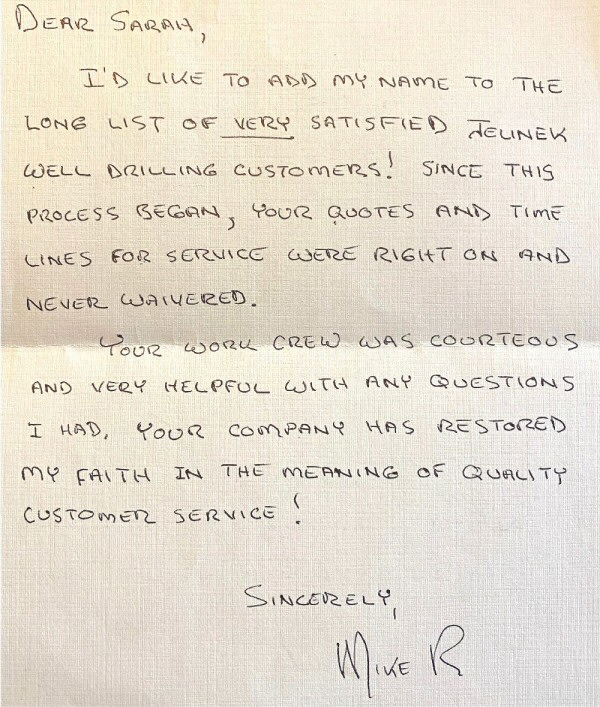 DEAR SARAH,
I'D LIKE TO ADD MY NAME TO THE
LONG LIST OF VERY SATISFIED JELINEK
WELL DRILLING CUSTOMERS! SINCE THIS
PROCESS BEGAN, YOUR QUOTES AND TIME
LINES FOR SERVICE WERE RIGHT ON AND
NEVER WAIVERED.
YOUR WORK CREW WAS COURTEOUS
AND VERY HELPFUL WITH ANY QUESTIONS
I HAD. YOUR COMPANY HAS RESTORED
MY FAITH IN THE MEANING OF QUALITY
CUSTOMER SERVICE!
SINCERELY,
MIKE R